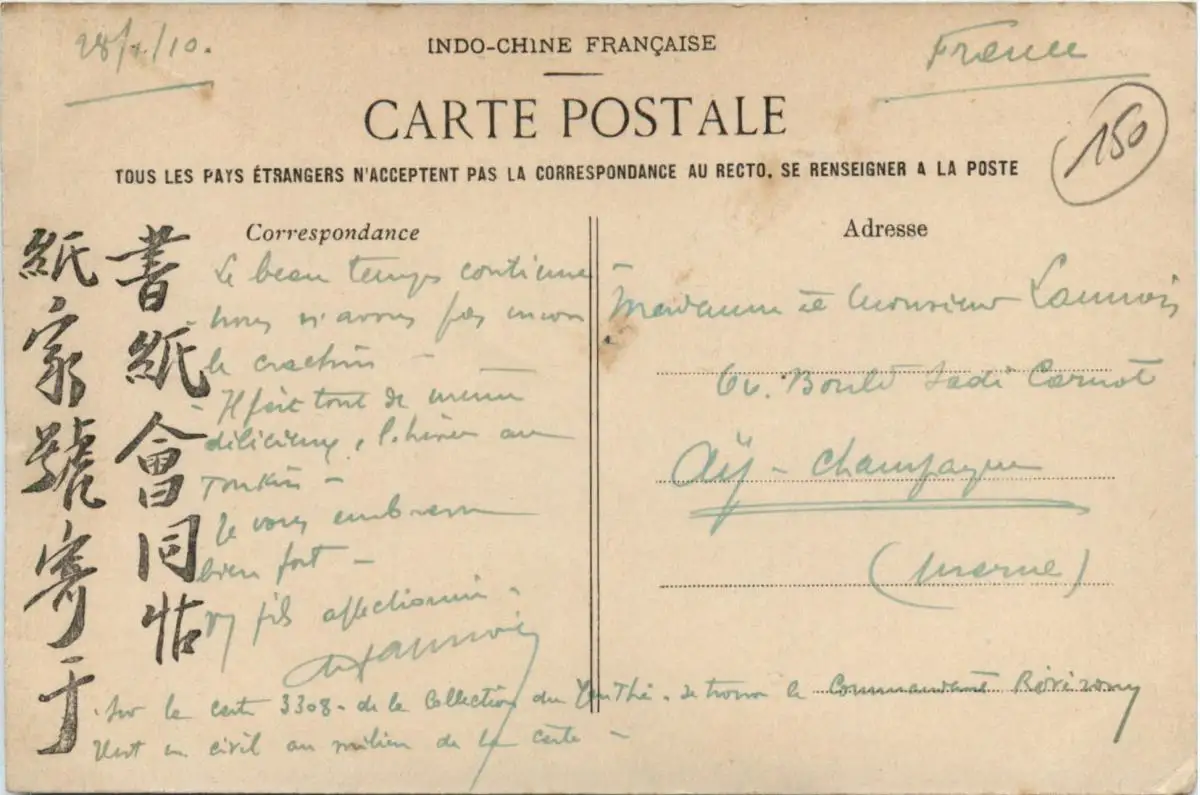 28/1/10.
INDO-CHINE FRANÇAISE
France
CARTE POSTALE
150
TOUS LES PAYS ÉTRANGERS N'ACCEPTENT PAS LA CORRESPONDANCE AU RECTO, SE RENSEIGNER A LA POSTE
書紙會同帖
紙家號寄于
Correspondance
Le beau temps continue –
– nous n'avons pas encore
le crachin –
– Il fait tout de même
délicieux, l'hiver au
Tonkin –
Je vous embrasse
bien fort –
fils affectionné.
Lannois
Sur la carte 3308 – de la Collection du Yen Thé. se trouve le Commandant
en civil au milieu de la carte –
Adresse
Madame et Monsieur Lannois
Boulv Sadi Carnot
Aÿ – Champagne
(Marne)